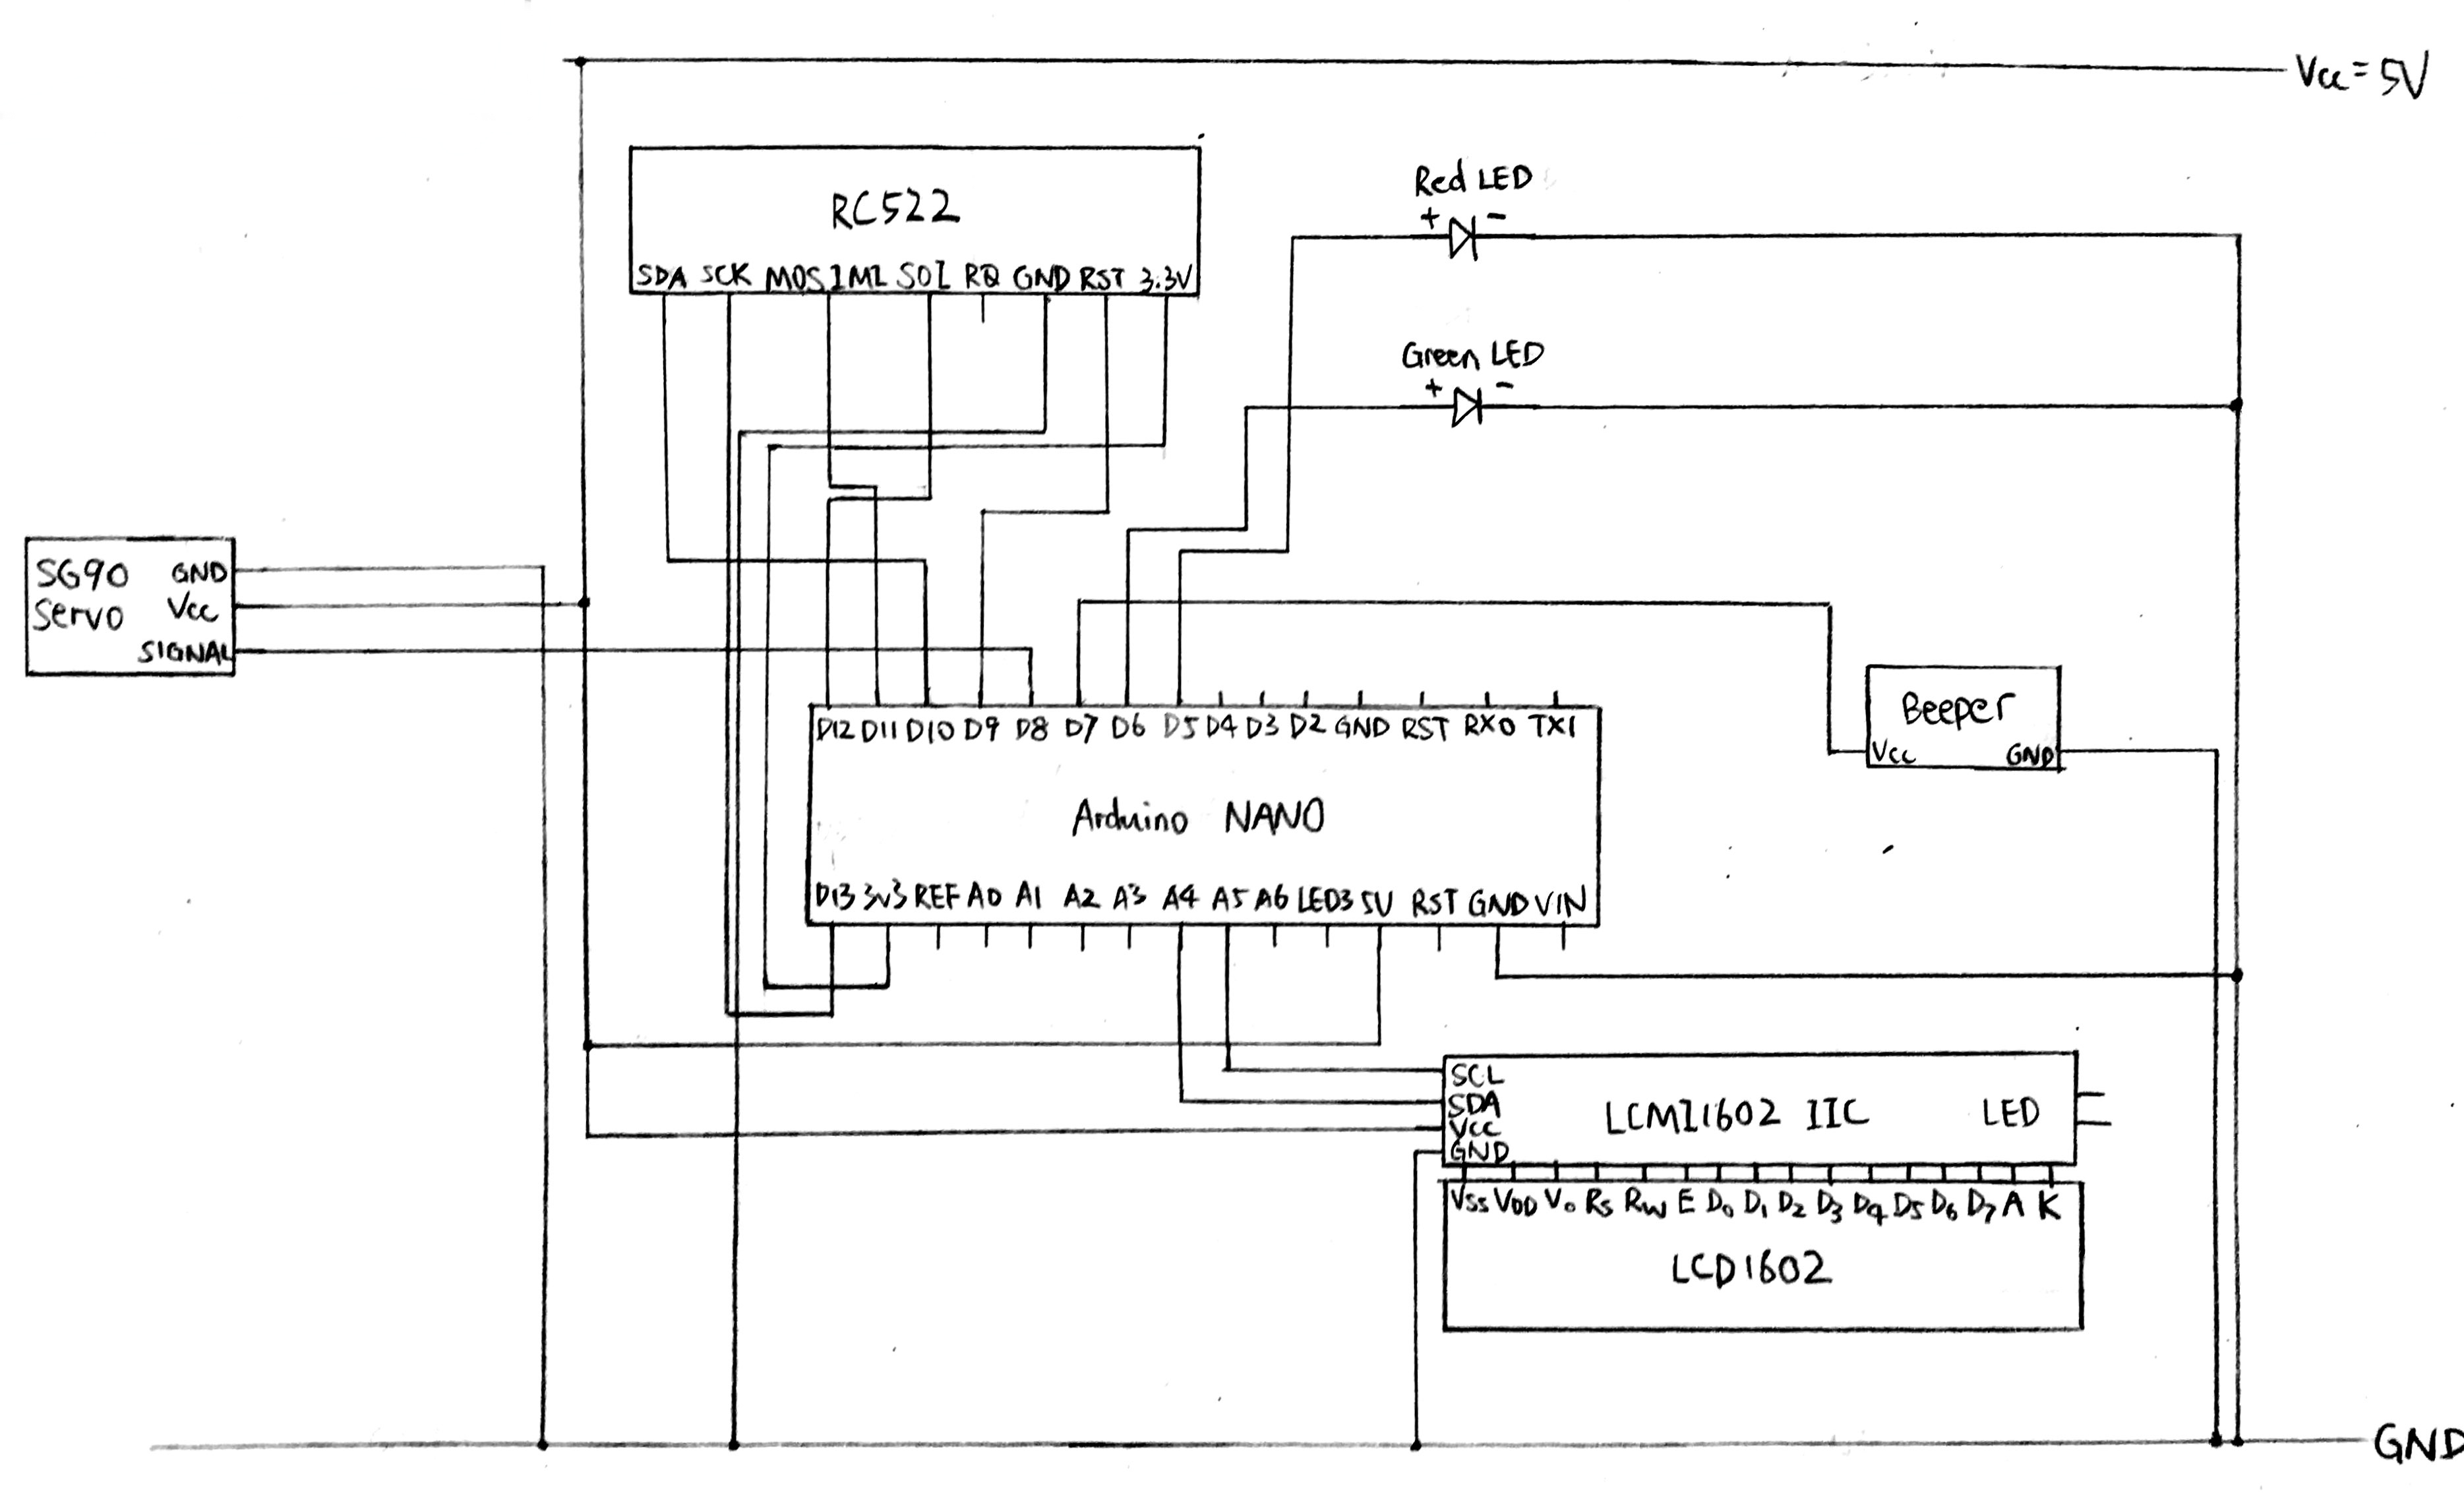 Vcc = 5V
RC522
SDA SCK MOSIMI SOI RQ GND RST 3.3V
Red LED
+ -
Green LED
+ -
SG90 GND
Servo Vcc
SIGNAL
D12 D11 D10 D9 D8 D7 D6 D5 D4 D3 D2 GND RST RX0 TX1
Arduino NANO
D13 3V3 REF A0 A1 A2 A3 A4 A5 A6 LED3 5V RST GND VIN
Beeper
Vcc GND
SCL
SDA
Vcc
GND
LCM1602 IIC LED
Vss VDD Vo Rs Rw E D0 D1 D2 D3 D4 D5 D6 D7 A K
LCD1602
GND